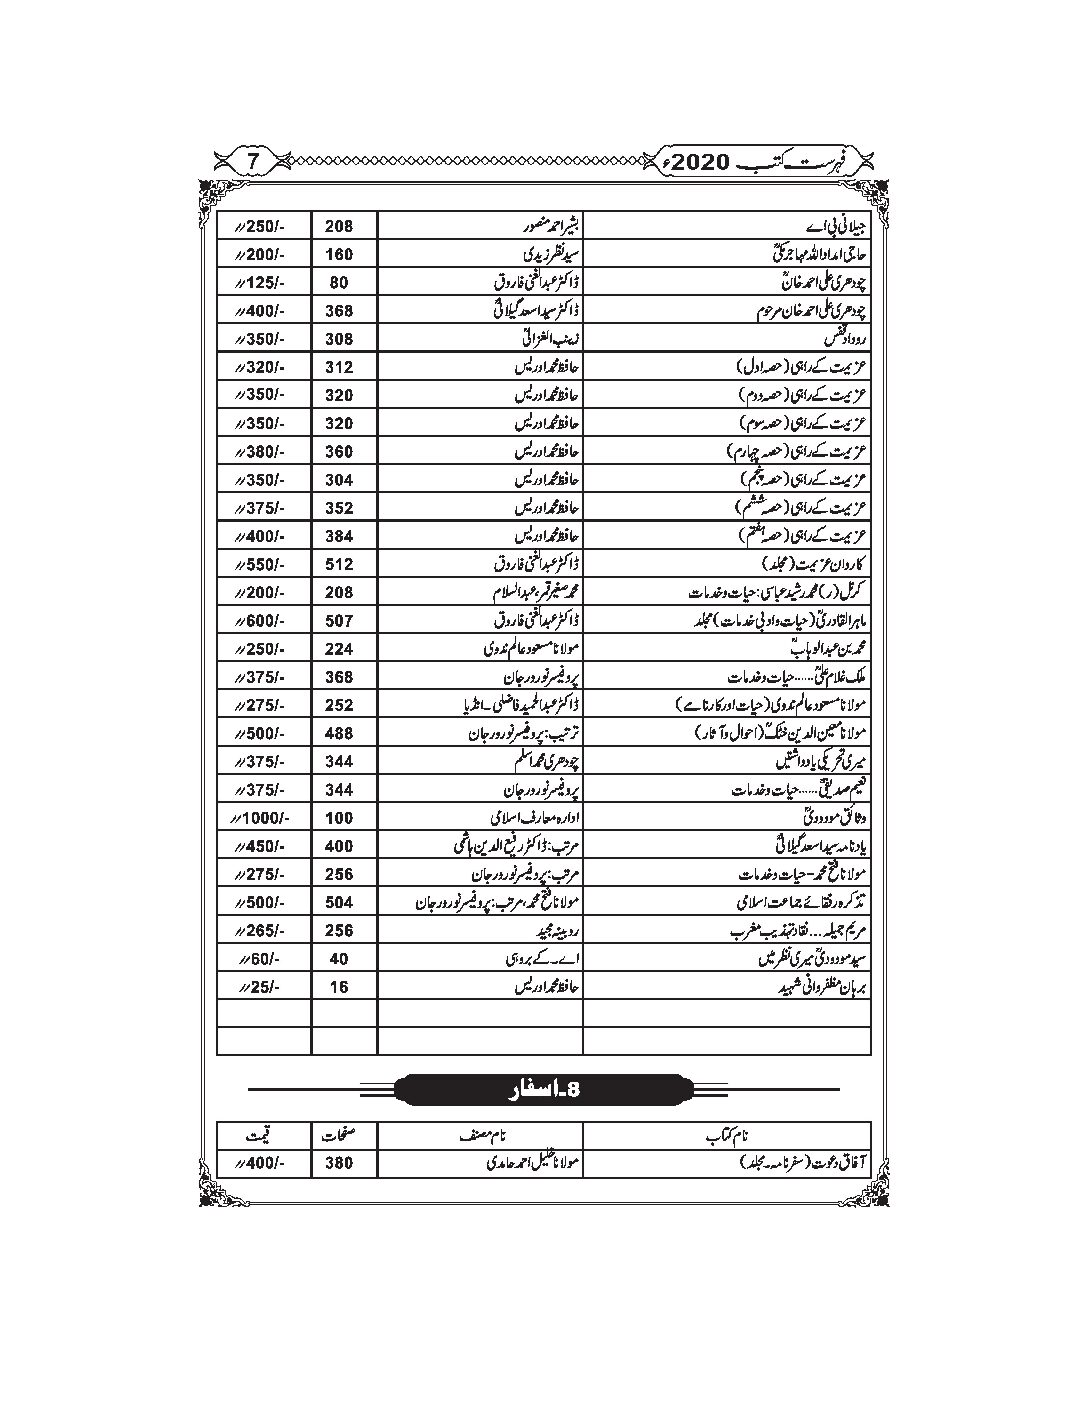 فہرست کتب 2020ء 7
جیلانی بی اے بشیر احمد منصور 208 250/-〃
حاجی امداد اللہ مہاجر مکیؒ سید نظر زیدی 160 200/-〃
چودھری علی احمد خانؒ ڈاکٹر عبدالغنی فاروق 80 125/-〃
چودھری علی احمد خان مرحوم ڈاکٹر سید اسعد گیلانیؒ 368 400/-〃
روداد قفس زینب الغزالیؒ 308 350/-〃
عزیمت کے راہی (حصہ اول) حافظ محمد ادریس 312 320/-〃
عزیمت کے راہی (حصہ دوم) حافظ محمد ادریس 320 350/-〃
عزیمت کے راہی (حصہ سوم) حافظ محمد ادریس 320 350/-〃
عزیمت کے راہی (حصہ چہارم) حافظ محمد ادریس 360 380/-〃
عزیمت کے راہی (حصہ پنجم) حافظ محمد ادریس 304 350/-〃
عزیمت کے راہی (حصہ ششم) حافظ محمد ادریس 352 375/-〃
عزیمت کے راہی (حصہ ہفتم) حافظ محمد ادریس 384 400/-〃
کاروان عزیمت (مجلد) ڈاکٹر عبدالغنی فاروق 512 550/-〃
کرنل (ر) محمد رشید عباسی: حیات و خدمات محمد صغیر قمر، عبدالسلام 208 200/-〃
ماہر القادریؒ (حیات و ادبی خدمات) مجلد ڈاکٹر عبدالغنی فاروق 507 600/-〃
محمد بن عبدالوہابؒ مولانا مسعود عالم ندوی 224 250/-〃
ملک غلام علیؒ......حیات و خدمات پروفیسر نور ور جان 368 375/-〃
مولانا مسعود عالم ندوی (حیات اور کارنامے) ڈاکٹر عبدالحمید فاضلی۔انڈیا 252 275/-〃
مولانا معین الدین خٹکؒ (احوال و آثار) ترتیب: پروفیسر نور ور جان 488 500/-〃
میری تحریکی یادداشتیں چودھری محمد اسلم 344 375/-〃
نعیم صدیقیؒ......حیات و خدمات پروفیسر نور ور جان 344 375/-〃
وثائق مودودیؒ ادارہ معارف اسلامی 100 1000/-〃
یادنامہ سید اسعد گیلانیؒ مرتب: ڈاکٹر رفیع الدین ہاشمی 400 450/-〃
مولانا فتح محمد-حیات و خدمات مرتب: پروفیسر نور ور جان 256 275/-〃
تذکرہ رفقائے جماعت اسلامی مولانا فتح محمد، مرتب: پروفیسر نور ور جان 504 500/-〃
مریم جمیلہ...نقاد تہذیب مغرب روبینہ مجید 256 265/-〃
سید مودودیؒ میری نظر میں اے۔ کے بروہی 40 60/-〃
برہان مظفر وانی شہید حافظ محمد ادریس 16 25/-〃
8۔اسفار
نام کتاب نام مصنف صفحات قیمت
آفاق دعوت (سفرنامہ۔مجلد) مولانا خلیل احمد حامدی 380 400/-〃